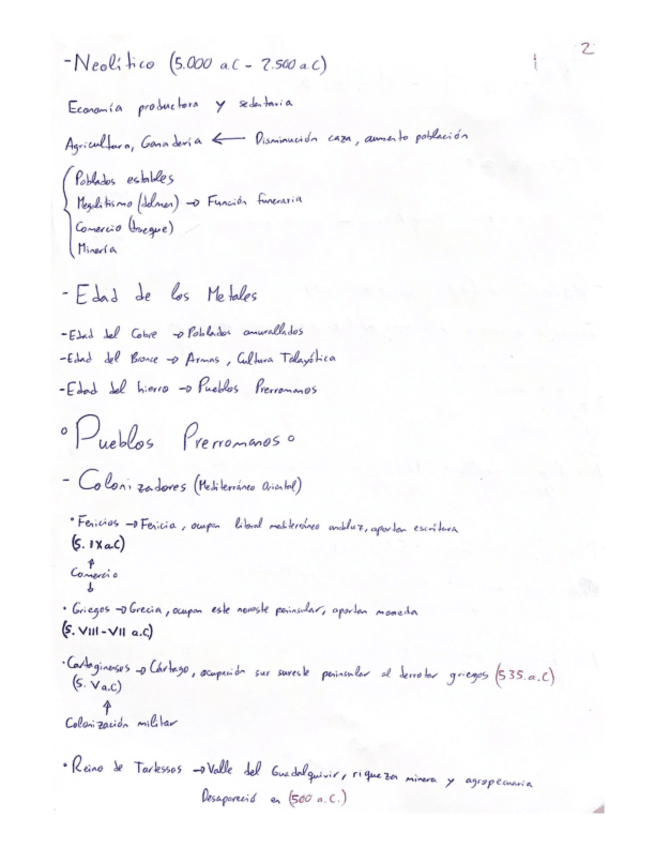 2
- Neolítico (5.000 a.C - 2.500 a.C)
Economía productora y sedentaria
Agricultura, Ganadería ← Disminución caza, aumento población
Poblados estables
Megalitismo (dolmen) → Función funeraria
Comercio (trueque)
Minería
- Edad de los Metales
-Edad del Cobre → Poblados amurallados
-Edad del Bronce → Armas, Cultura Talayótica
-Edad del hierro → Pueblos Prerromanos
° Pueblos Prerromanos °
- Colonizadores (Mediterráneo Oriental)
• Fenicios → Fenicia, ocupan litoral mediterráneo andaluz, aportan escritura
(S. IX a.C)
↑
Comercio
↓
• Griegos → Grecia, ocupan este noreste peninsular, aportan moneda
(S. VIII - VII a.C)
• Cartagineses → Cártago, ocupación sur sureste peninsular al derrotar griegos (535.a.C)
(S. V a.C)
↑
Colonización militar
• Reino de Tartessos → Valle del Guadalquivir, riqueza minera y agropecuaria
Desapareció en (500 a.C.)